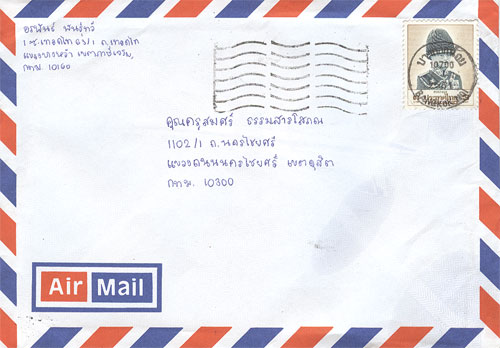 อรพันธ์ พันธุ์ทวี
1 ซ.เทอดไท 63/1 ถ.เทอดไท
แขวงบางหว้า เขตภาษีเจริญ
กทม. 10160
คุณครุสมศรี ธรรมสารโสภณ
1102/1 ถ.นครไชยศรี
แขวงถนนนครไชยศรี เขตดุสิต
กทม. 10300
10200
Air Mail